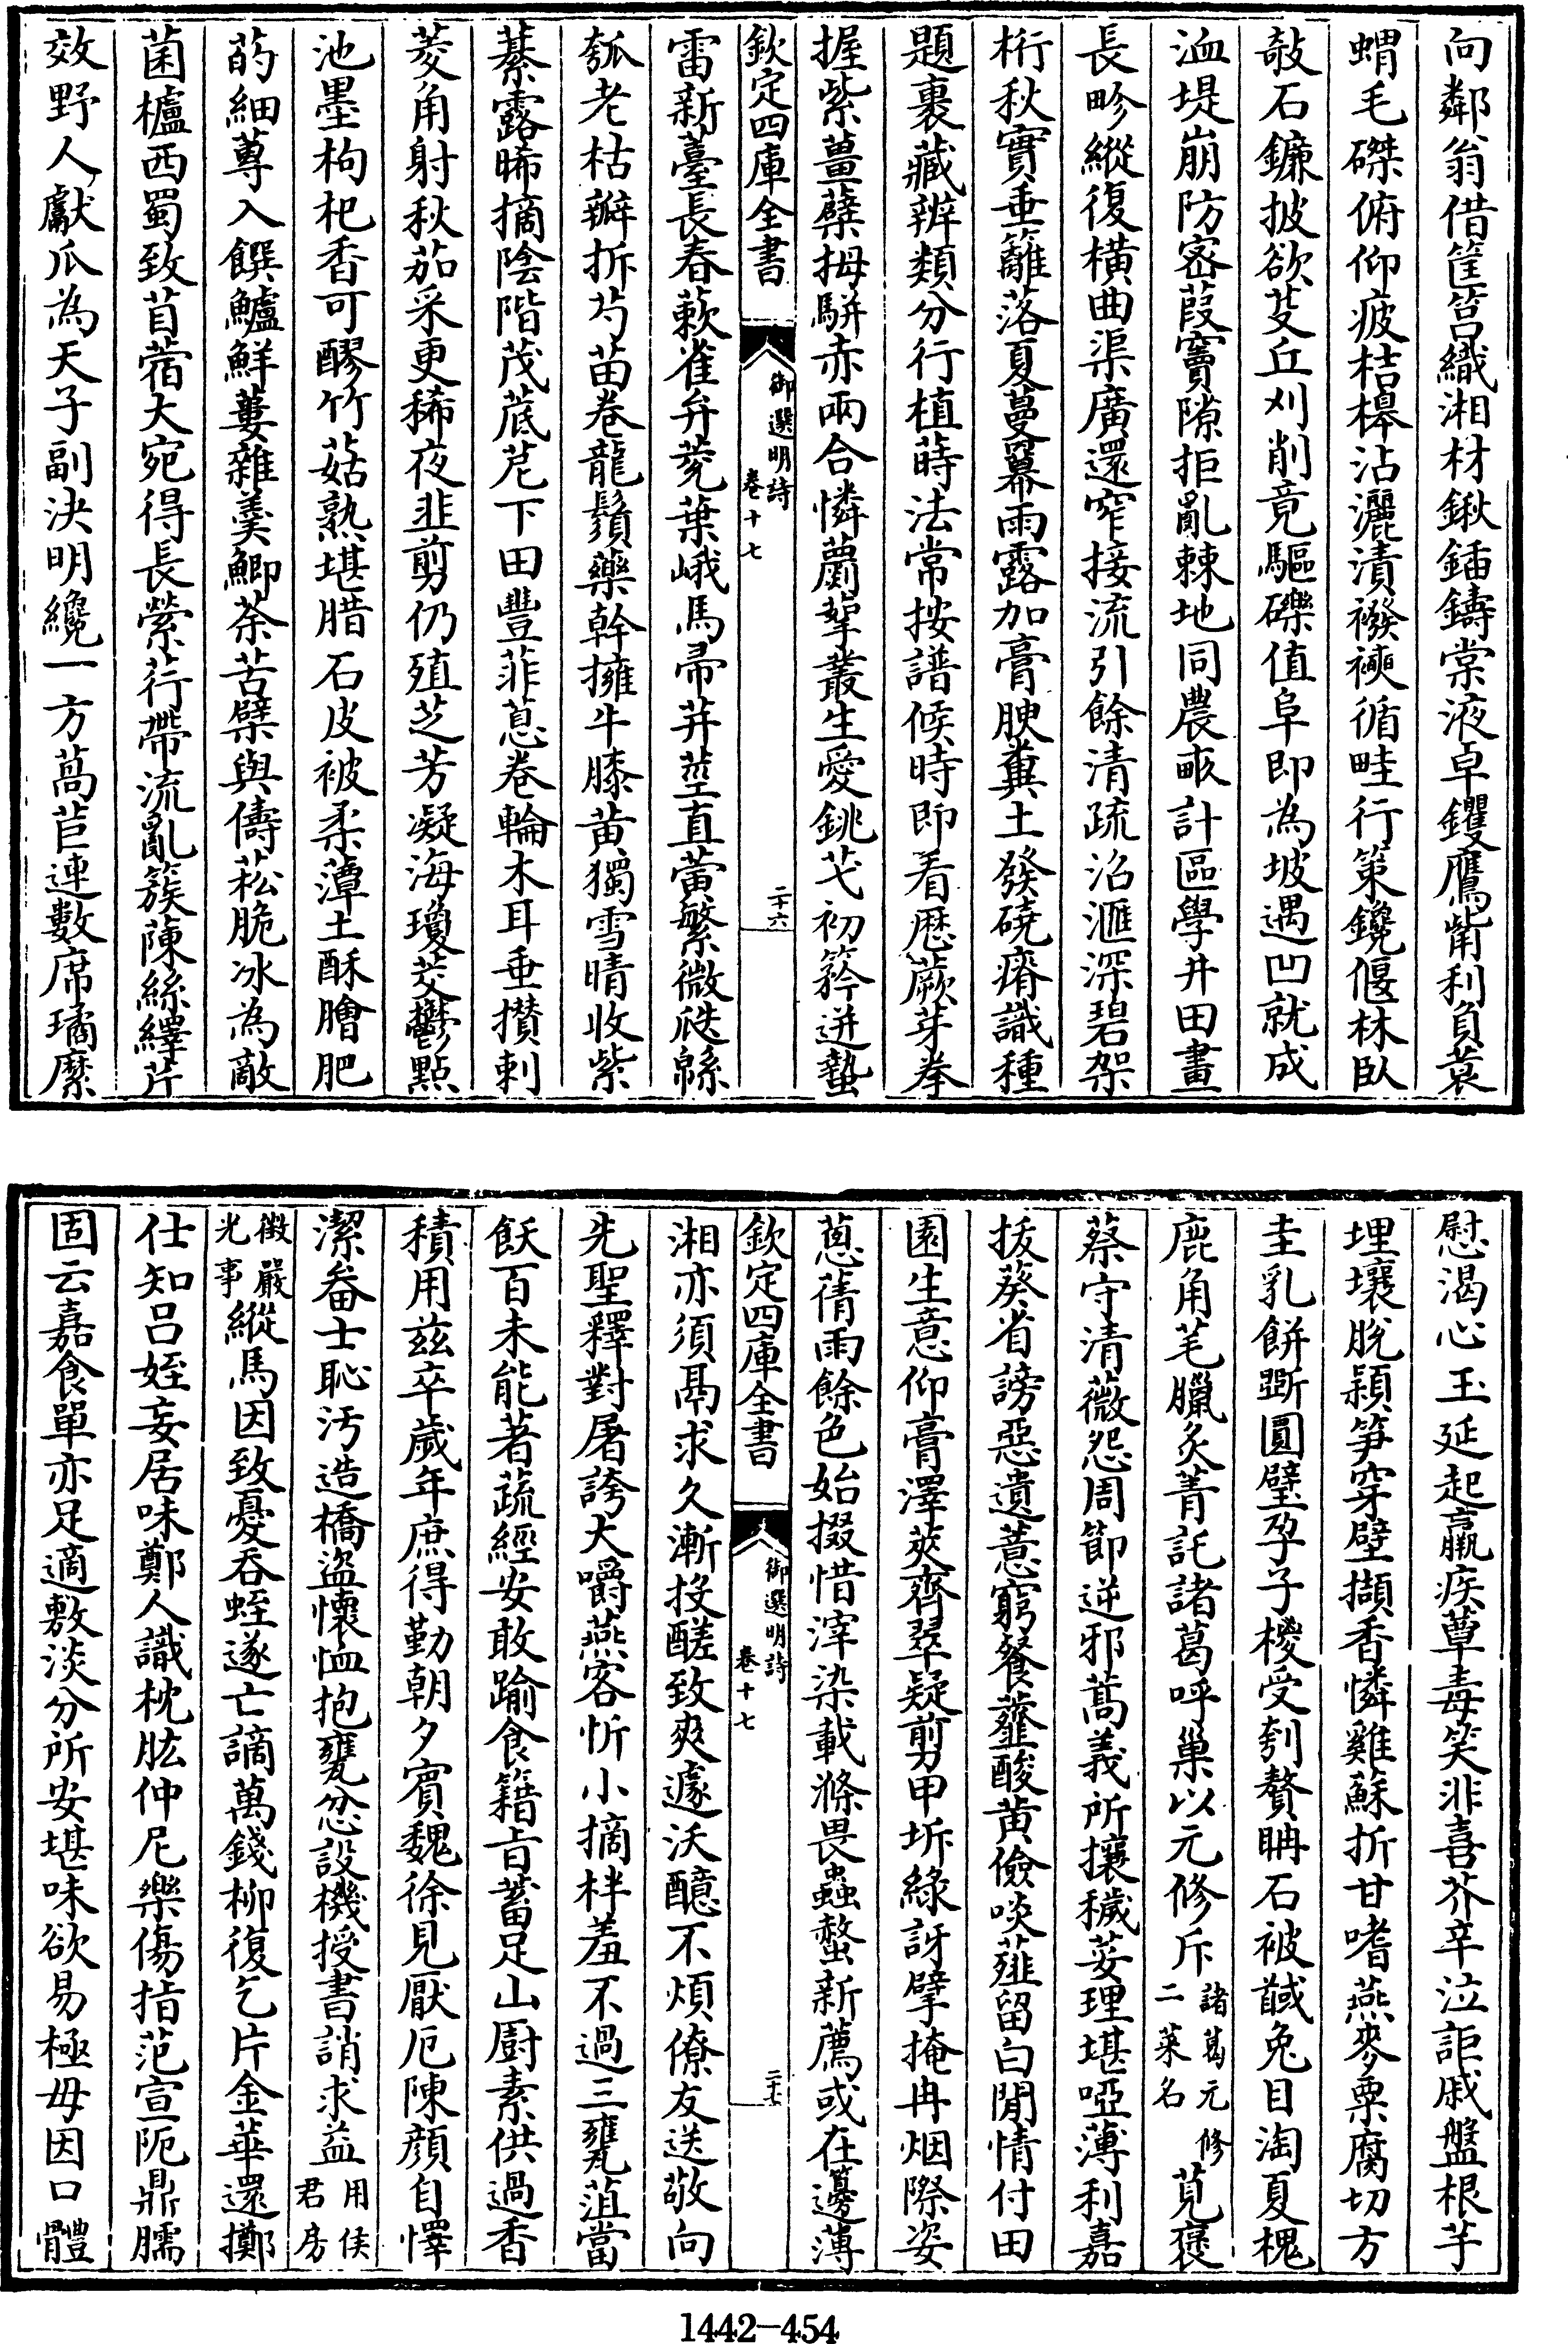 向鄰翁借筐筥織湘材鍬鍤鑄棠液卓钁鷹觜利負蓑
蝟毛磔俯仰疲桔槔沾灑漬襏襫循畦行策鑱偃林臥
敲石鐮披欲芟丘刈削竟驅礫值阜即為坡遇凹就成
洫堤崩防密葭竇隙拒亂棘地同農畝計區學井田畫
長畛縱復橫曲渠廣還窄接流引餘清疏沿滙深碧架
桁秋實垂籬落夏蔓羃雨露加膏腴糞土發磽瘠識種
題裹藏辨類分行植蒔法常按譜候時即看厯蕨芽拳
握紫薑蘗拇駢赤兩合憐蘮挐叢生愛銚芅初箁迸蟄
欽定四庫全書
御選明詩
卷十七
二十六
雷新薹長春蔌雀弁莌葉峨馬帚茾莖直蕾繁微瓞緜
瓠老枯瓣拆芍苗卷龍鬚藥幹擁牛膝黃獨雪晴收紫
蓁露晞摘陰階茂菧苨下田豐菲蒠卷輪木耳垂攢刺
菱角射秋茄采更稀夜韭剪仍殖芝芳凝海瓊茭鬱點
池墨枸杞香可醪竹菇熟堪腊石皮被柔藫土酥膾肥
菂細蓴入饌鱸鮮蔞雜羹鯽荼苦檗與儔菘脆冰為敵
菌櫨西蜀致苜蓿大宛得長縈荇帶流亂簇蔯絲繹芹
效野人獻瓜為天子副決明纔一方萵苣連數席璚縻
慰渴心玉延起羸疾蕈毒笑非喜芥辛泣詎戚盤根芋
埋壤脫穎筍穿壁擷香憐雞蘇折甘嗜燕麥粟腐切方
圭乳餅斲圓璧孕子椶受刳贅聃石被馘兔目淘夏槐
鹿角芼臘炙菁託諸葛呼巢以元修斥諸葛元修
二菜名莧褒
蔡守清薇怨周節逆邪蒿義所攘穢荽理堪啞薄利嘉
拔葵省謗惡遺薏窮餐虀酸黃儉啖薤留白閒情付田
園生意仰膏澤莢齊翠疑剪甲坼綠訝擘掩冉烟際姿
蔥蒨雨餘色始掇惜滓染載滌畏蟲螫新薦或在籩薄
欽定四庫全書
御選明詩
卷十七
二十七
湘亦須鬲求久漸投醝致爽遽沃醷不煩僚友送敬向
先聖釋對屠誇大嚼燕客忻小摘柈羞不過三甕菹當
飫百未能著蔬經安敢踰食籍旨蓄足山廚素供過香
積用茲卒歲年庶得勤朝夕賓魏徐見厭厄陳顏自懌
潔畚士恥汚造橋盜懷恤抱甕忿設機授書誚求益用侯
君房
徴嚴
光事縱馬因致憂吞蛭遂亡謫萬錢柳復乞片金華還擲
仕知呂姪妄居味鄭人識枕肱仲尼樂傷指范宣阨鼎臑
固云嘉食單亦足適敷淡分所安堪味欲易極毋因口體
1442-454